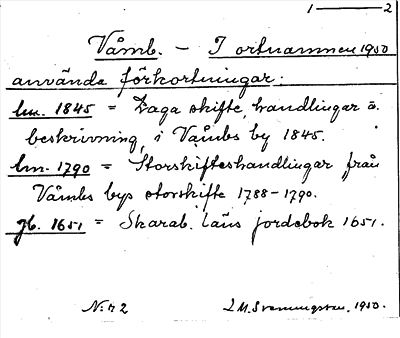 1 — 2
Våmb. – I ortnamnen 1950
använda förkortningar:
lm. 1845 = Laga skifte, handlingar o.
beskrivning, i Våmbs by 1845.
lm. 1790 = Storskifteshandlingar från
Våmbs bys storskifte 1788-1790.
jb. 1651 = Skarab. läns jordebok 1651.
N:r 2 L M. Svenungsson, 1950.